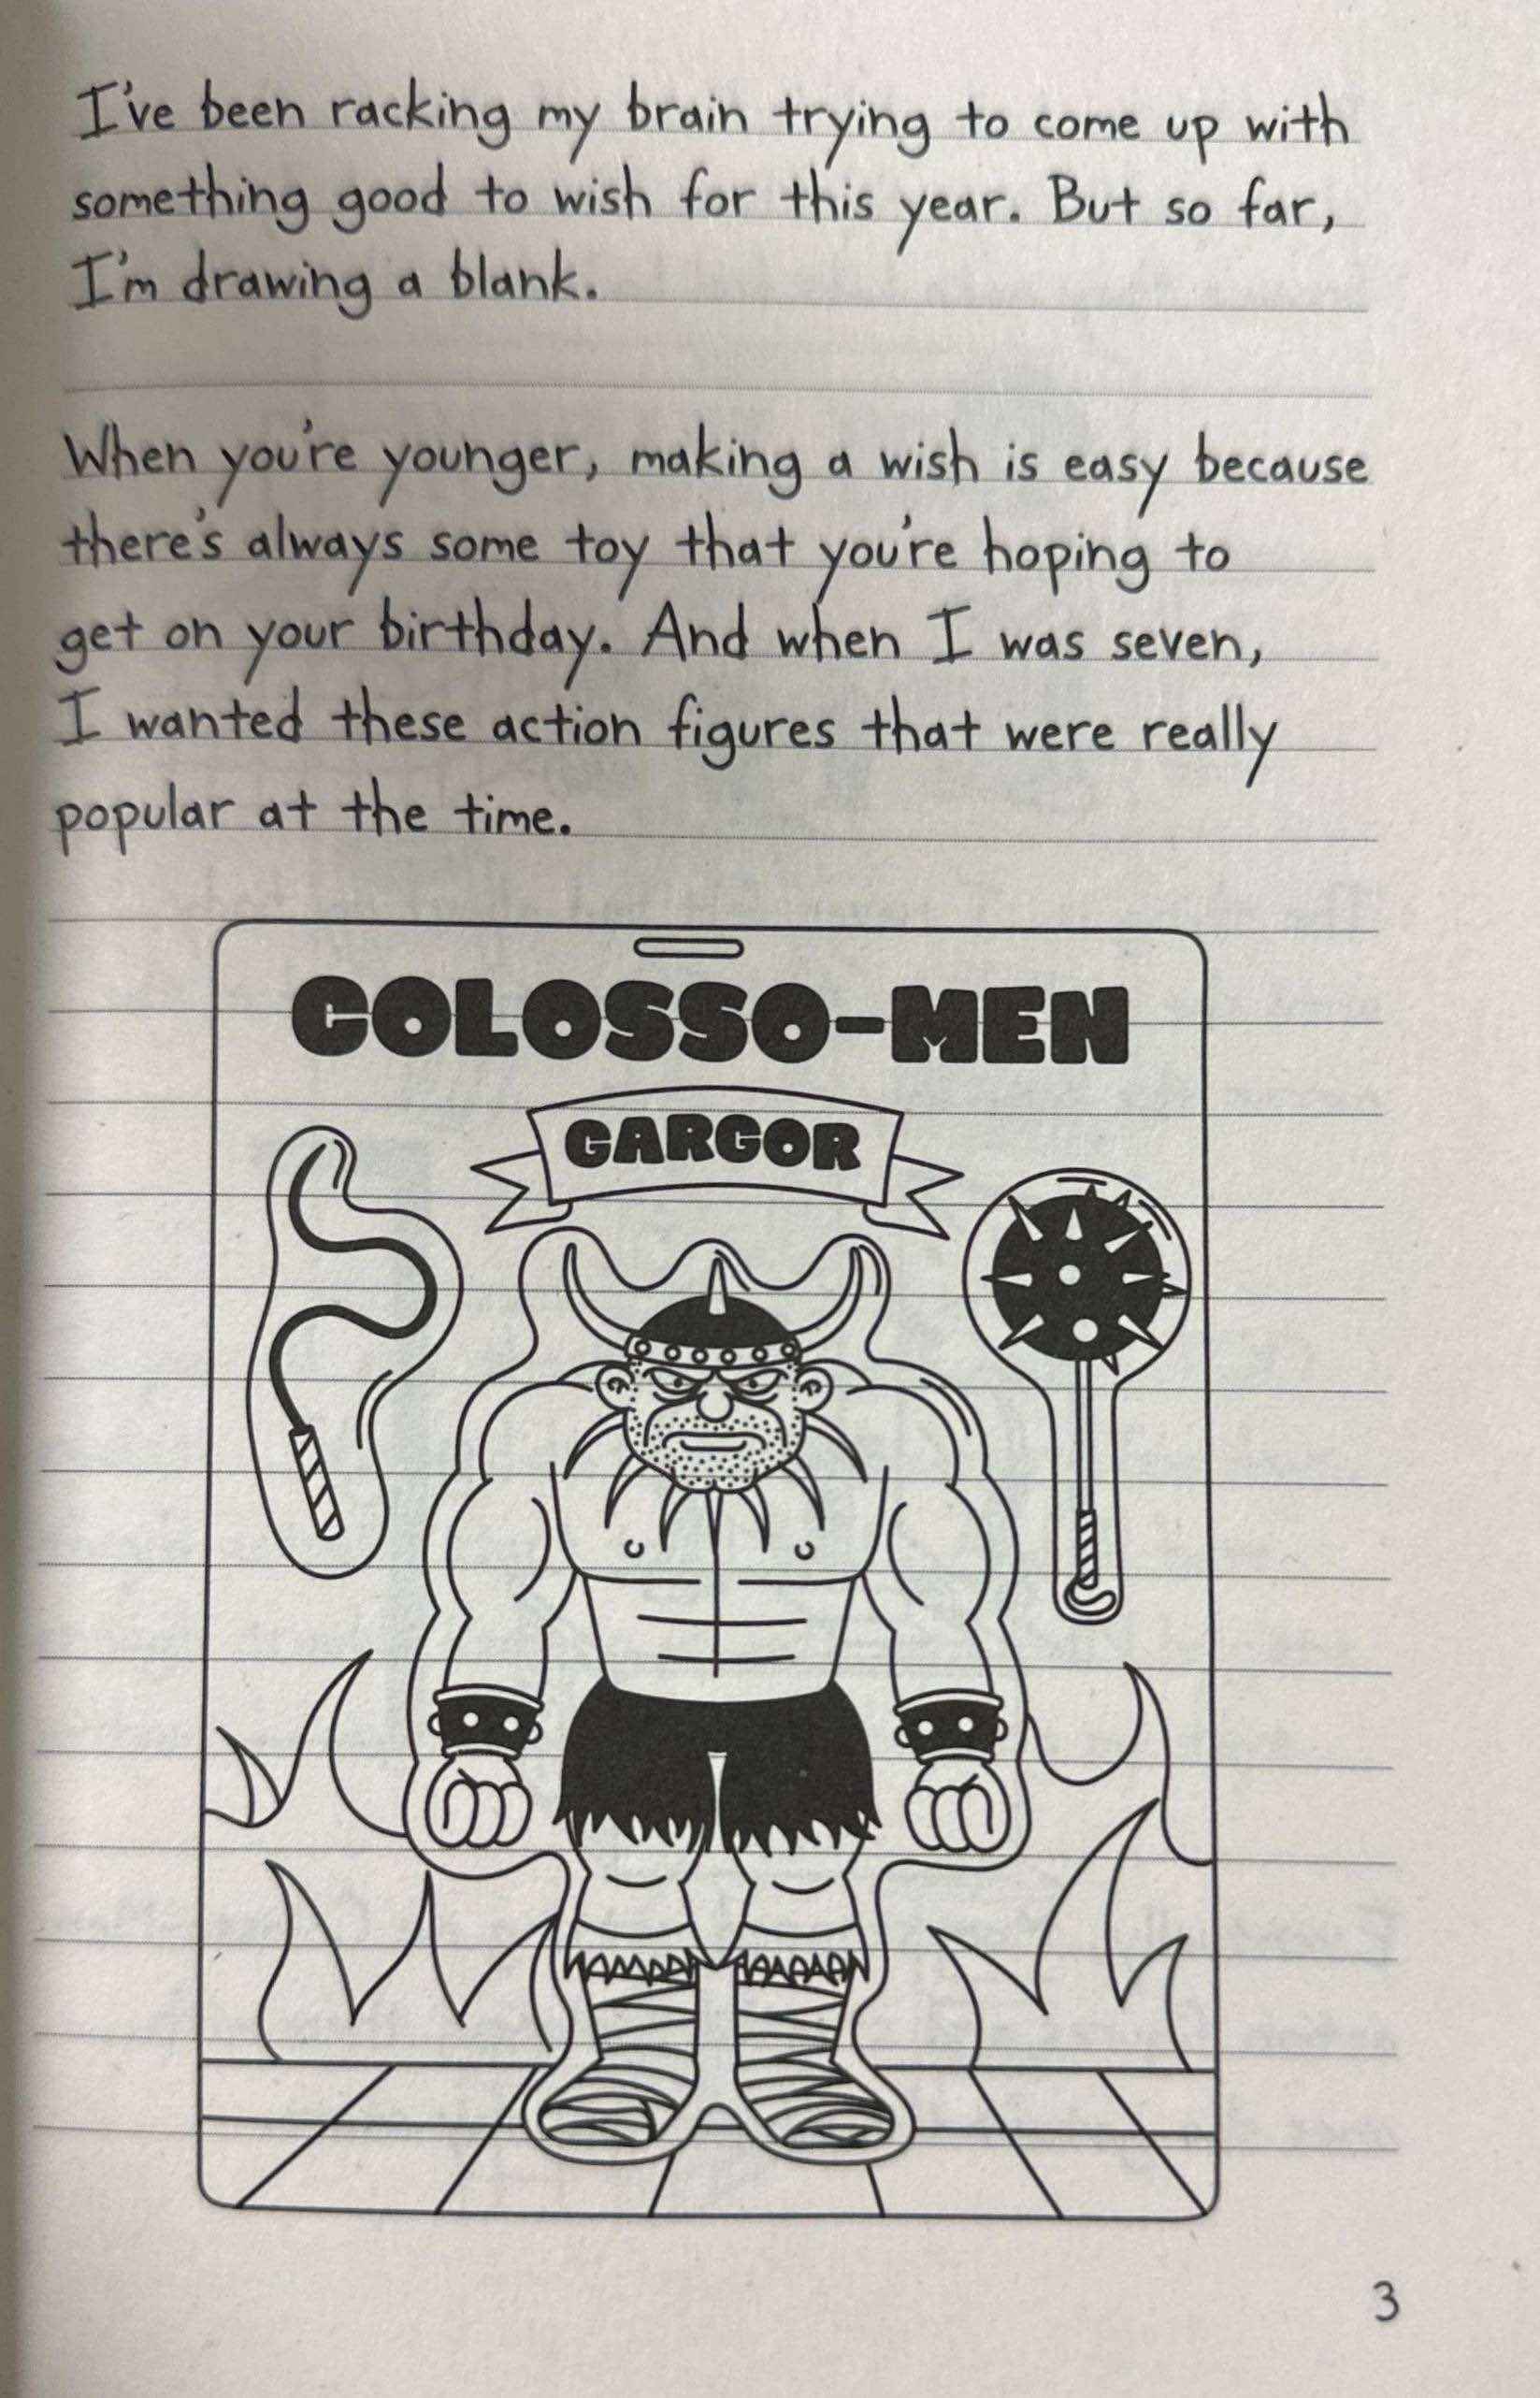 I've been racking my brain trying to come up with
something good to wish for this year. But so far,
I'm drawing a blank.
When you're younger, making a wish is easy because
there's always some toy that you're hoping to
get on your birthday. And when I was seven,
I wanted these action figures that were really
popular at the time.
COLOSSO-MEN
GARGOR
3